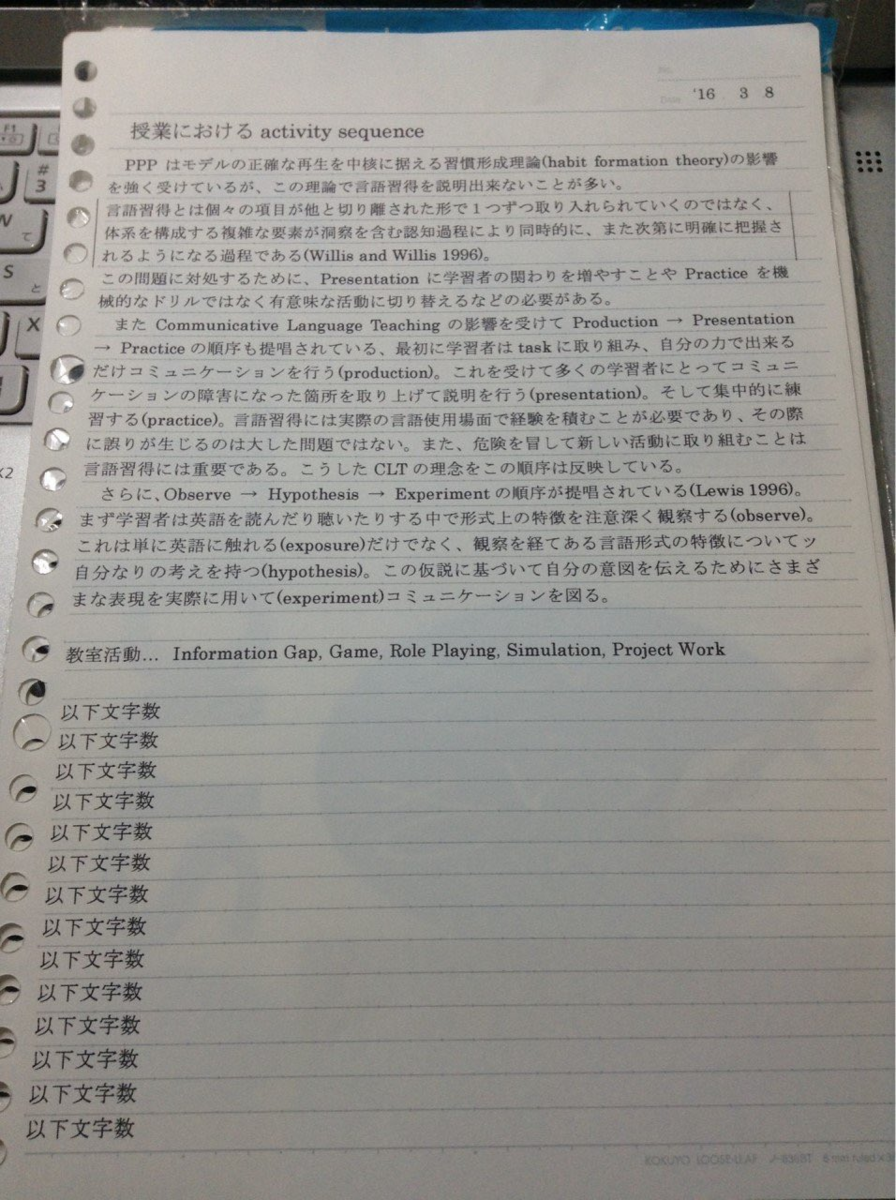 No.
Date '16 3 8
授業における activity sequence
PPP はモデルの正確な再生を中核に据える習慣形成理論(habit formation theory)の影響
を強く受けているが、この理論で言語習得を説明出来ないことが多い。
言語習得とは個々の項目が他と切り離された形で1つずつ取り入れられていくのではなく、
体系を構成する複雑な要素が洞察を含む認知過程により同時的に、また次第に明確に把握さ
れるようになる過程である(Willis and Willis 1996)。
この問題に対処するために、Presentation に学習者の関わりを増やすことや Practice を機
械的なドリルではなく有意味な活動に切り替えるなどの必要がある。
また Communicative Language Teaching の影響を受けて Production → Presentation
→ Practice の順序も提唱されている、最初に学習者は task に取り組み、自分の力で出来る
だけコミュニケーションを行う(production)。これを受けて多くの学習者にとってコミュニ
ケーションの障害になった箇所を取り上げて説明を行う(presentation)。そして集中的に練
習する(practice)。言語習得には実際の言語使用場面で経験を積むことが必要であり、その際
に誤りが生じるのは大した問題ではない。また、危険を冒して新しい活動に取り組むことは
言語習得には重要である。こうした CLT の理念をこの順序は反映している。
さらに、Observe → Hypothesis → Experiment の順序が提唱されている(Lewis 1996)。
まず学習者は英語を読んだり聴いたりする中で形式上の特徴を注意深く観察する(observe)。
これは単に英語に触れる(exposure)だけでなく、観察を経てある言語形式の特徴についてッ
自分なりの考えを持つ(hypothesis)。この仮説に基づいて自分の意図を伝えるためにさまざ
まな表現を実際に用いて(experiment)コミュニケーションを図る。
教室活動… Information Gap, Game, Role Playing, Simulation, Project Work
以下文字数
以下文字数
以下文字数
以下文字数
以下文字数
以下文字数
以下文字数
以下文字数
以下文字数
以下文字数
以下文字数
以下文字数
以下文字数
以下文字数